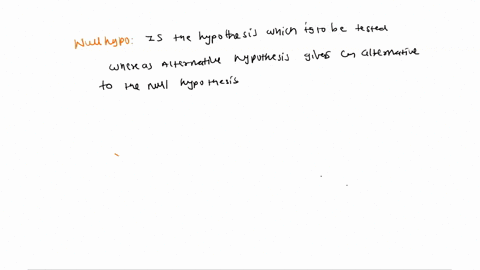 Null hypo: Is the hypothesis which is to be tested
whereas Alternative hypothesis gives an alternative
to the null hypothesis